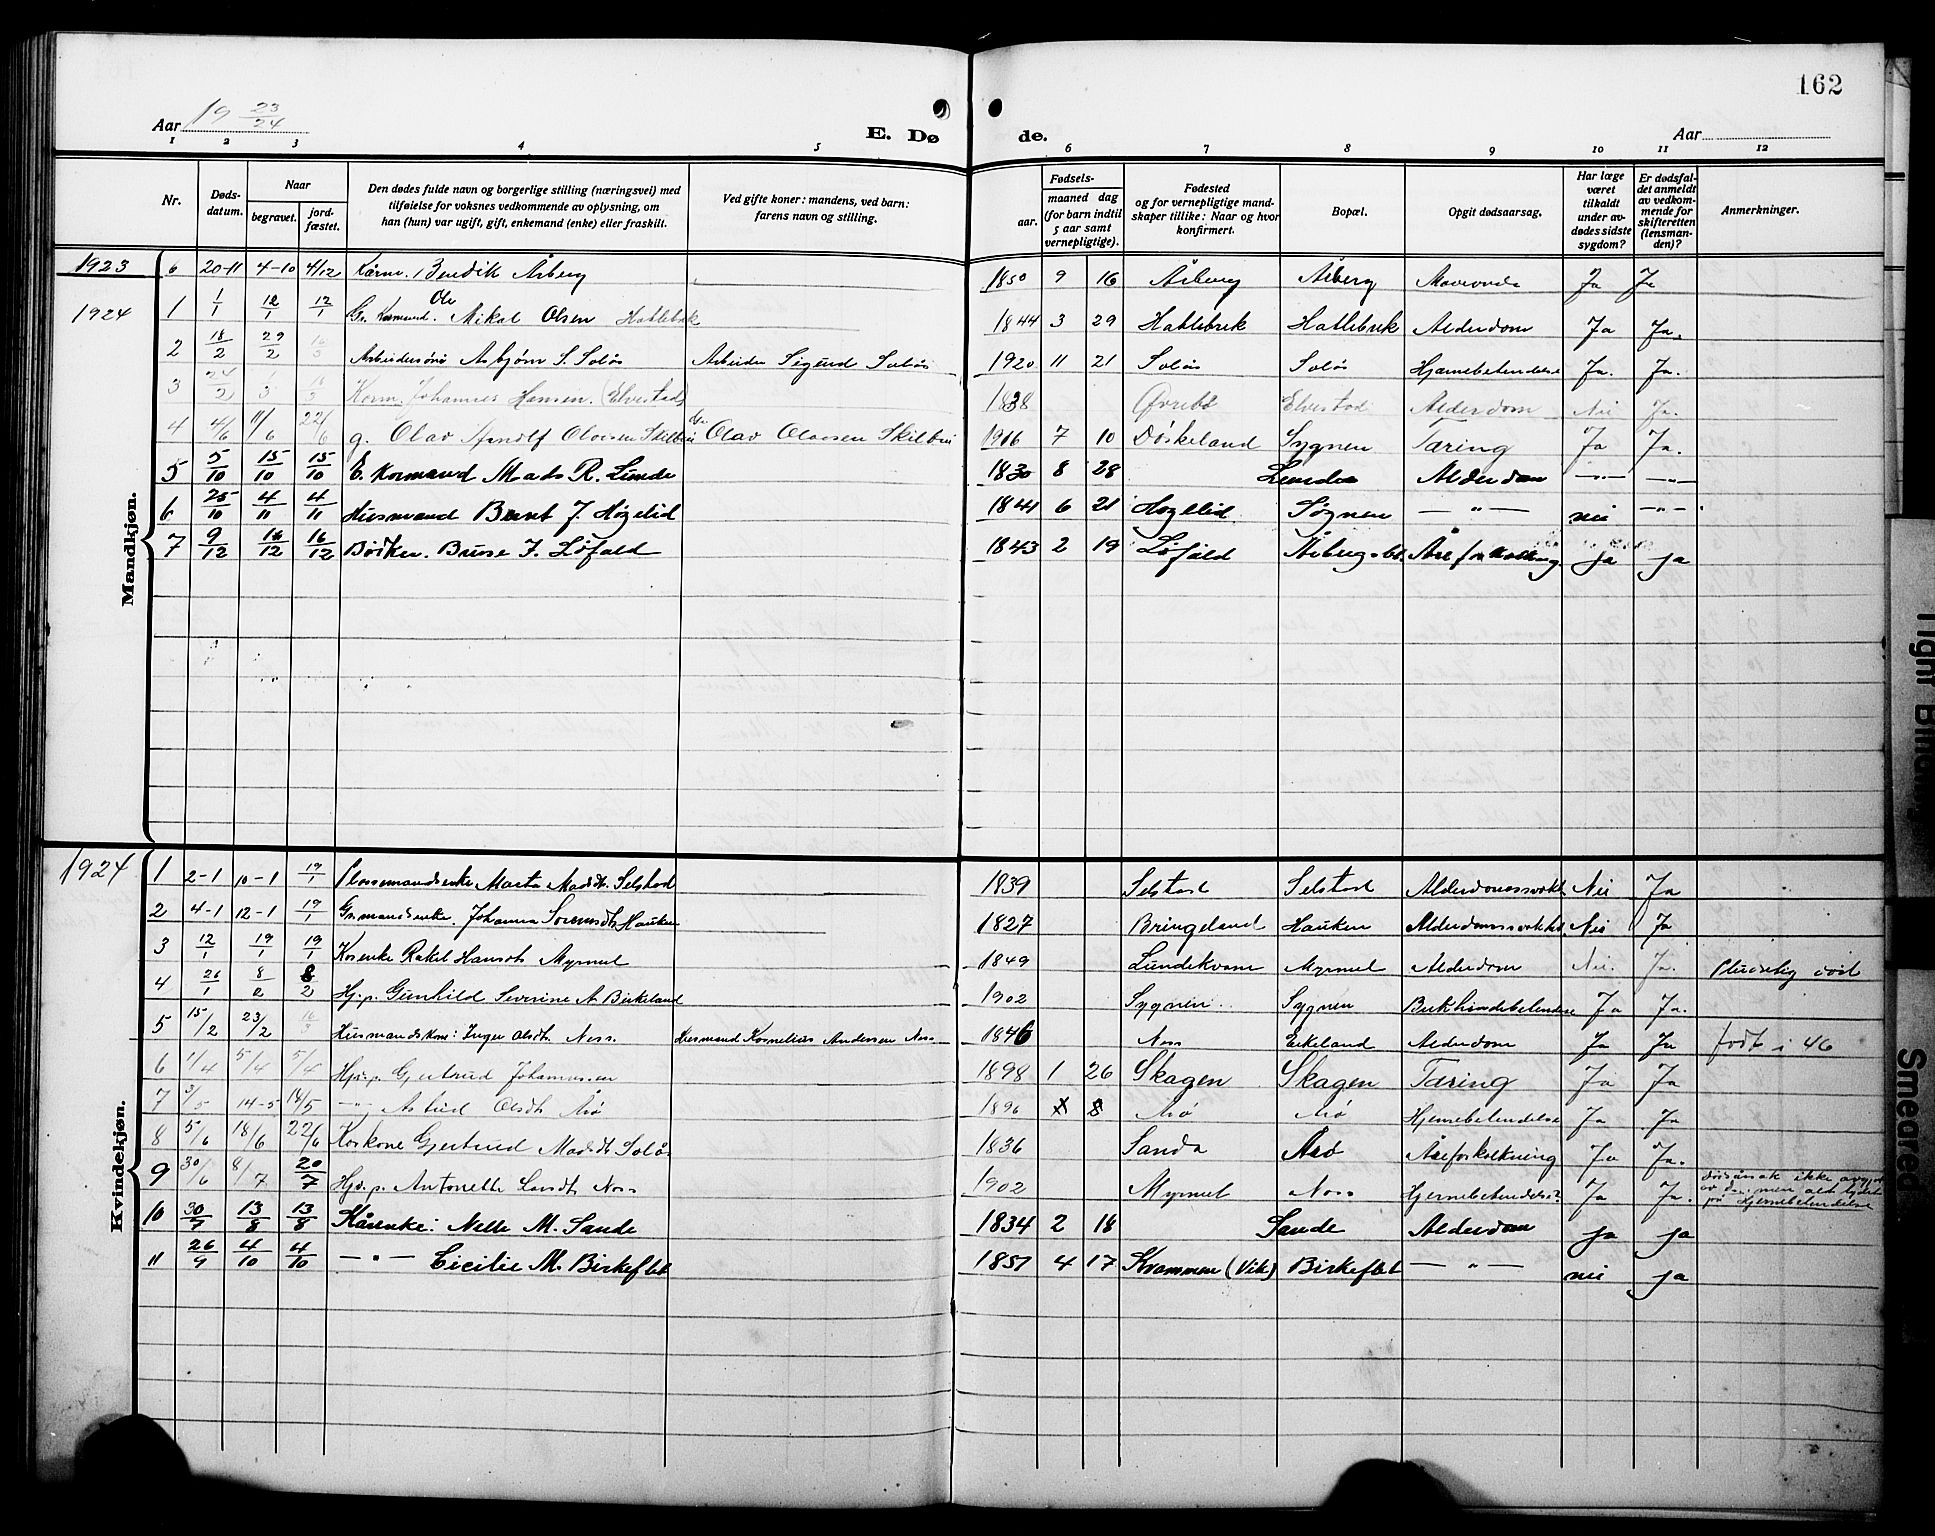 162
Aar 19 23/24
E. Døde.
Aar
1 2 3 4 5 6 7 8 9 10 11 12
Nr.
Døds-datum.
Naar
begravet.
jord-fæstet.
Den dødes fulde navn og borgerlige stilling (næringsvei) med
tilføielse for voksnes vedkommende av oplysning, om
han (hun) var ugift, gift, enkemand (enke) eller fraskilt.
Ved gifte koner: mandens, ved barn:
farens navn og stilling.
Fødsels-
aar.
maaned dag
(for barn indtil
5 aar samt
vernepligtige).
Fødested
og for vernepligtige mand-
skaper tillike: Naar og hvor
konfirmert.
Bopæl.
Opgit dødsaarsag.
Har læge
været
tilkaldt
under av-
dødes sidste
sygdom?
Er dødsfal-
det anmeldt
av vedkom-
mende for
skifteretten
(lensman-
den)?
Anmerkninger.
Mandkjøn.
1923 6 20-11 4-10 4/12 Kårm. Bendik Åsberg 1850 9 16 Åsberg Åsberg Ja Ja
1924 1 1/1 12/1 12/1 Ole Mikal Olsen Hatlebrek 1844 3 29 Hatlebrek Hatlebrek Alderdom Ja Ja.
2 18/2 29/2 16/3 Arbeidersøn Asbjørn S. Solås Arbeider Sigurd Solås 1920 11 21 Solås Solås Hjernebetendelse Ja. Ja.
3 24/2 1/3 16/3 Korm. Johannes Hansen (Elvestad) 1838 Øvrebø Elvestad Alderdom Nei Ja.
4 4/6 11/6 22/6 g. Olav Arnolf Olavsen Skilbrei Olav Olavsen Skilbrei 1916 7 10 Døskeland Sygnen Tæring Ja Ja.
5 5/10 15/10 15/10 E. Kormand Mads R. Lunde 1830 8 28 Lunde Alderdom —"— —"—
6 25/10 4/11 4/11 Husmand Bernt J. Høgelid 1841 6 21 Høgelid Sognen —"— nei —"—
7 9/12 16/12 16/12 Bødker. Brune J. Løfald 1843 2 19 Løfald Åreforkalkning ja ja
Kvindekjøn.
1924 1 2-1 10-1 19/1 Plassmandsenke Marta Madsdt. Selstad 1839 Selstad Selstad Nei Ja
2 4-1 12-1 19/1 Grmandsenke. Johanna Sørensdt. Hauken 1827 Bringeland Hauken Nei Ja
3 12/1 19/1 19/1 Korenke Rakel Hansdt. Myrmel 1849 Lundekvam Myrmel Alderdom Nei. Ja. Pludselig død
4 26/1 8/2 8/2 Hj.p. Gunhild Severine A. Birkeland 1902 Sygnen Sygnen Bukhindebetendelse Ja Ja.
5 15/2 23/2 16/3 Husmandskone: Inger Olsdt. Ness. Husmand Kornelius Andersen Ness 1846 Ness Eikeland Alderdom Ja Ja født i 46
6 1/4 5/4 5/4 Hj.p. Gjertrud Johannessen 1898 1 26 Skagen Skagen Tæring Ja Ja
7 3/5 14-5 18/5 —"— Astrid Olsdt. Årø 1896 8 Årø Årø Hjernebetendelse Ja Ja
8 5/6 18/6 22/6 Korkone Gjertrud Madsdt. Solås 1836 Sanda Årø Åreforkalkning Ja Ja.
9 30/6 8/7 20/7 Hj.p. Antonette Larsdt. Ness 1902 Myrmel Ness Hjernebetendelse Ja Ja. dødsårsak ikke men alt tydet på Hjernebetendelse
10 30/7 13/8 13/8 Kårenke: Nelle M. Sande 1834 2 18 Sande Alderdom ja ja
11 26/9 4/10 4/10 —"— Cicilie M. Birkeflot 1857 4 17 Kvammen (Vik) Birkeflot —"— nei ja
Tight Binding
Smeared